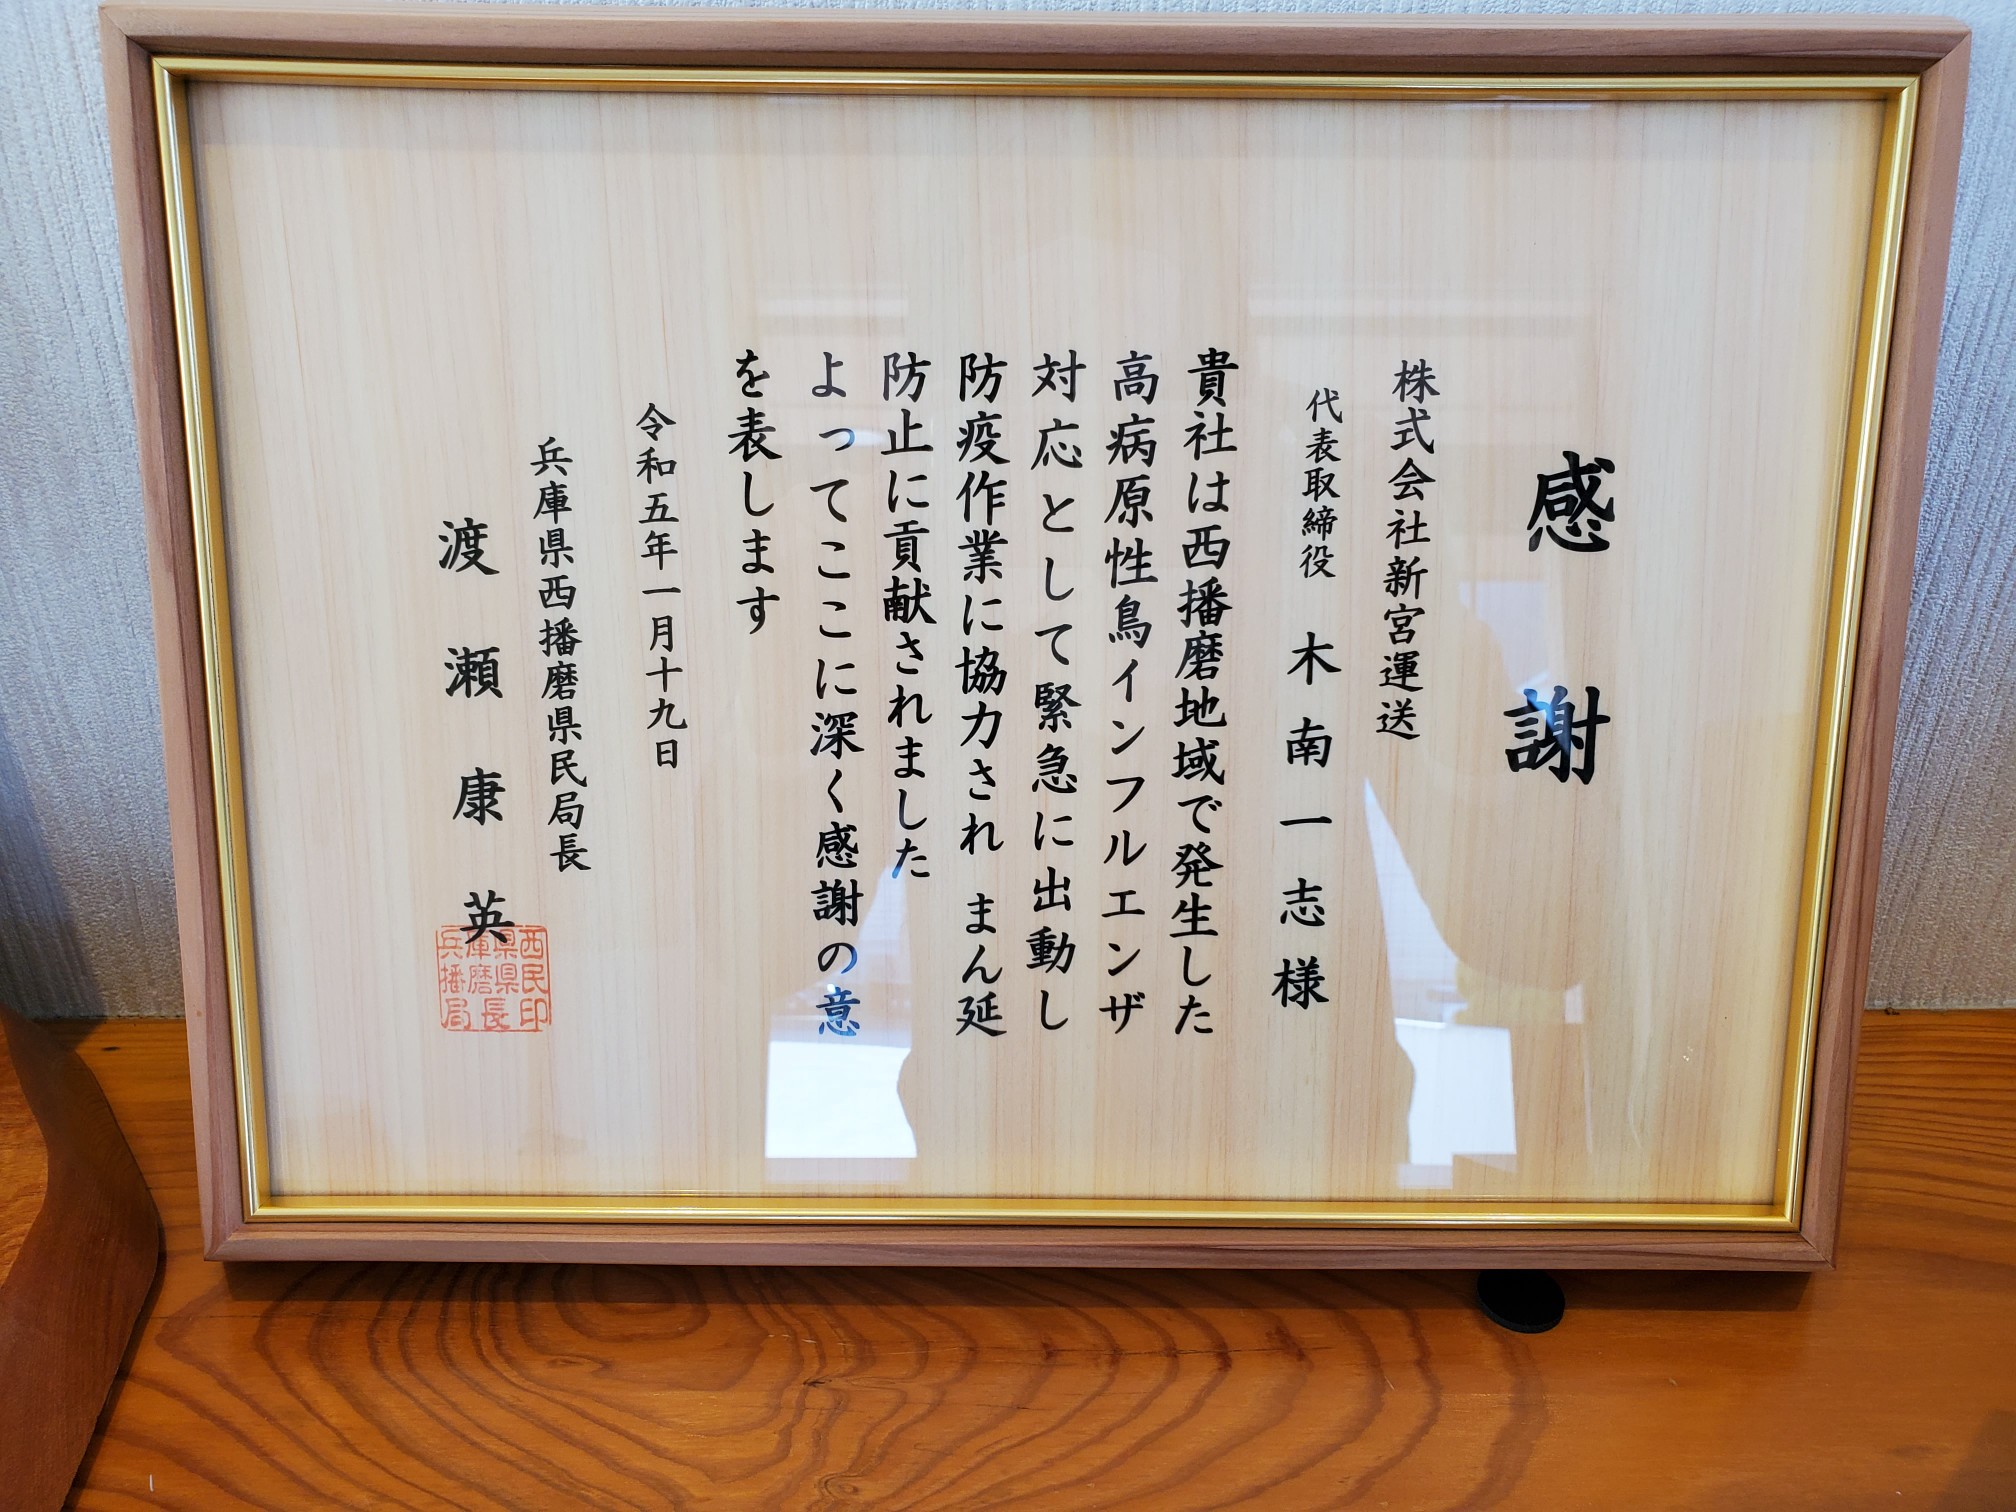 感謝
株式会社新宮運送
代表取締役 木南一志様
貴社は西播磨地域で発生した
高病原性鳥インフルエンザ
対応として緊急に出動し
防疫作業に協力され まん延
防止に貢献されました
よってここに深く感謝の意
を表します
令和五年一月十九日
兵庫県西播磨県民局長
渡瀬康英
兵庫県西
播磨県民
局長印